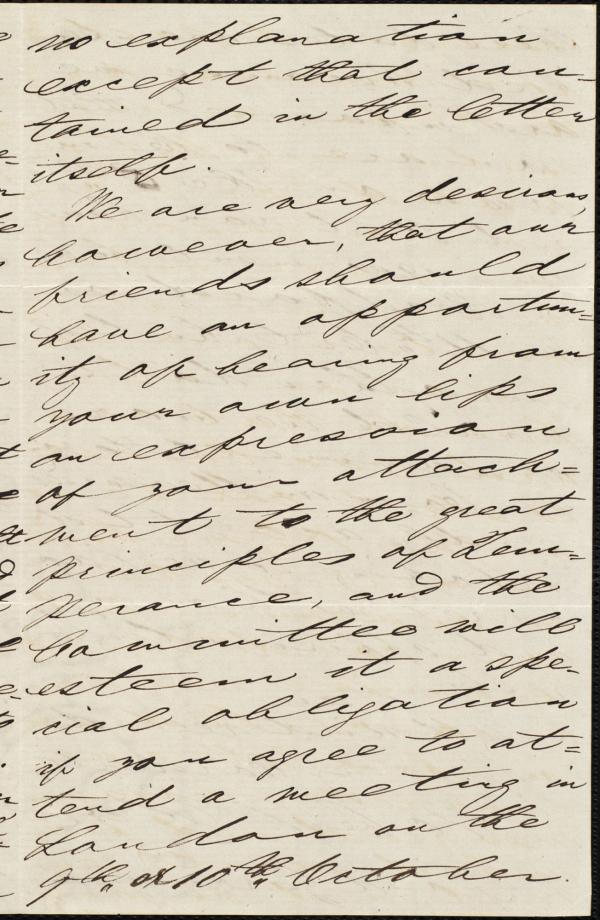 no explanation
except that con-
tained in the letter
itself.
We are very desirous,
however, that our
friends should
have an opportun=
ity of hearing from
your own lips
an expression
of your attach=
ment to the great
principles of Tem=
perance, and the
Committee will
esteem it a spe-
cial obligation
if you agree to at=
tend a meeting in
London on the
9th, or 10th October.